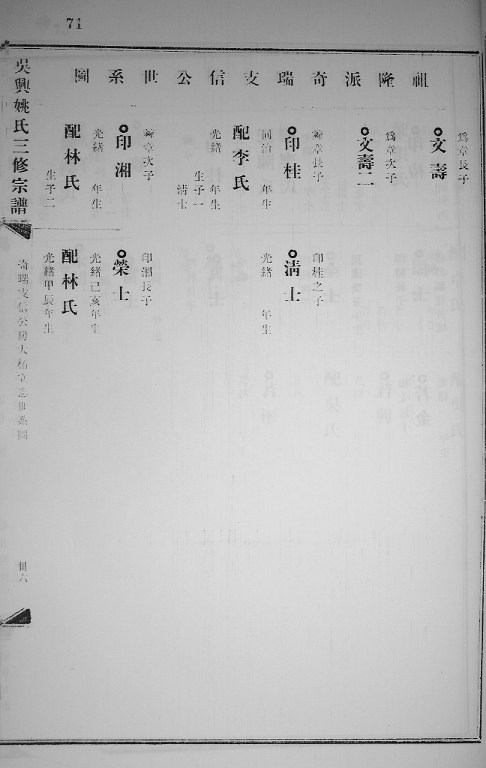 71
祖隆派奇瑞支信公世系圖
為章長子
文壽
為章次子
文壽二
章長子
印桂
同治 年生
配李氏
光緒 年生
生子一
清士
章次子
印湘
光緒 年生
配林氏
生子二
印桂之子
清士
光緒 年生
印湘長子
榮士
光緒己亥年生
配林氏
光緒甲辰年生
吳興姚氏三修宗譜
奇瑞支信公房大柘立志世系圖
卌六